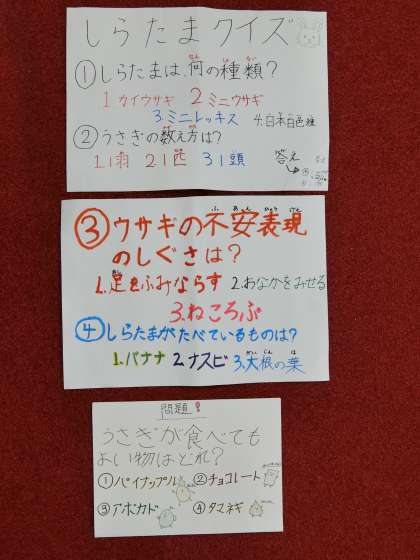 しらたまクイズ
①しらたまは、何の種類?
1カイウサギ 2ミニウサギ
3.ミニレッキス 4.日本白色種
②うさぎの数え方は?
1.1羽 2 1匹 3 1頭 答え
③ウサギの不安表現
のしぐさは?
1.足をふみならす 2.おなかをみせる
3.ねころぶ
④しらたまがたべているものは?
1.バナナ 2.ナスビ 3.大根の葉
問題
うさぎが食べても
よい物はどれ?
①パイナップル ②チョコレート
③アボカド ④タマネギ